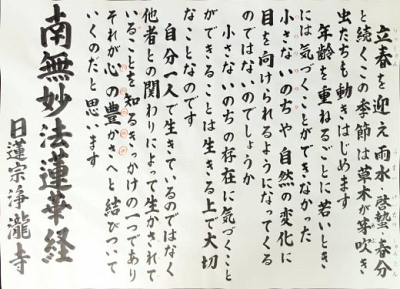 立春を迎え雨水・啓蟄・春分
と続くこの季節は草木が芽吹き
虫たちも動きはじめます
年齢を重ねるごとに若いとき
には気づくことができなかった
小さないのちや自然の変化に
目を向けられるようになってくる
のではないのでしょうか
小さないのちの存在に気づくこと
ができることは生きる上で大切
なことなのです
自分一人で生きているのではなく
他者との関わりによって生かされて
いることを知るきっかけの一つであり
それが心の豊かさへと結びついて
いくのだと思います
南無妙法蓮華経
日蓮宗浄瀧寺